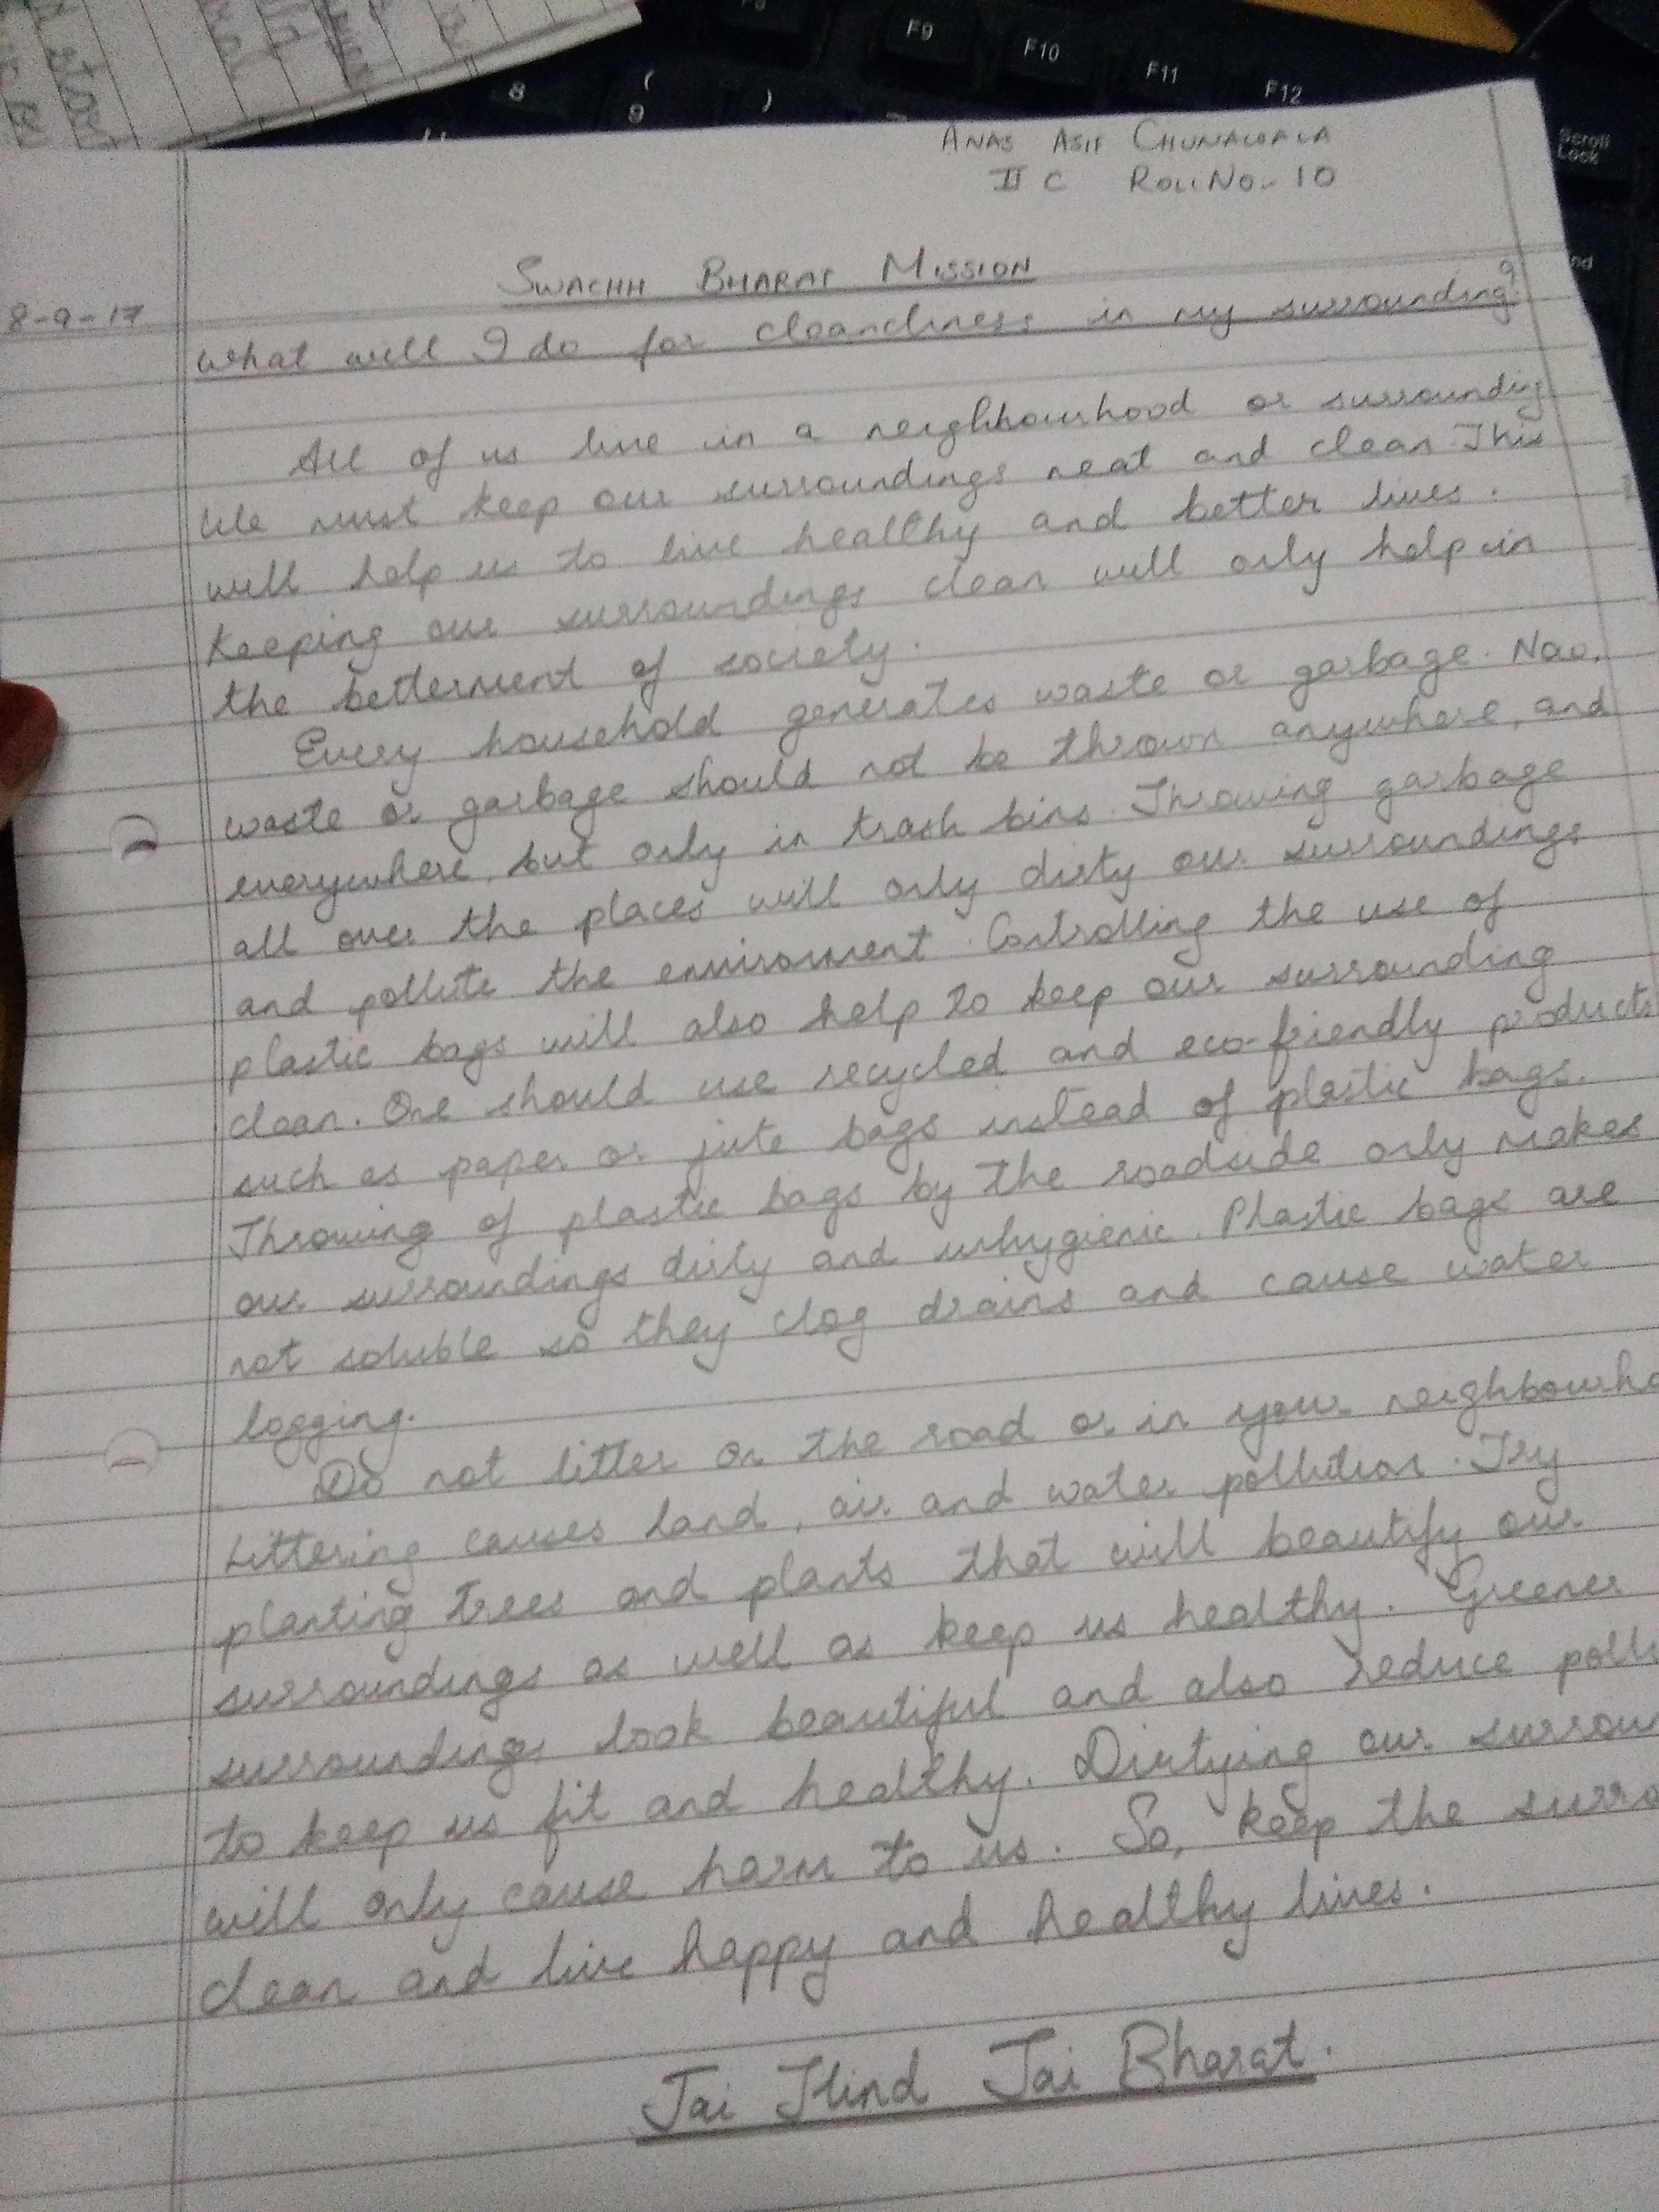 F9
F10
F11
F12
8
(
9
)
Scroll
Lock
ANAS ASIF CHUNAWALA
II C ROLL NO.- 10
SWACHH BHARAT MISSION
8-9-17
What will I do for cleanliness in my surrounding?
All of us live in a neighbourhood or surrounding
We must keep our surroundings neat and clean. This
will help us to live healthy and better lives.
Keeping our surroundings clean will only help in
the betterment of society.
Every household generates waste or garbage. Now,
waste or garbage should not be thrown anywhere, and
everywhere, but only in trash bins. Throwing garbage
all over the places will only dirty our surroundings
and pollute the enviroment. Controlling the use of
plastic bags will also help to keep our surrounding
clean. One should use recycled and eco-friendly products
such as paper or jute bags instead of plastic bags.
Throwing of plastic bags by the roadside only makes
our surroundings dirty and unhygienic. Plastic bags are
not soluble so they clog drains and cause water
logging.
Do not litter on the road or in your neighbourho
Littering causes land, air and water pollution. Try
planting trees and plants that will beautify our
surroundings as well as keep us healthy. Greener
surroundings look beautiful and also reduce poll
to keep us fit and healthy. Dirtying our surroun
will only cause harm to us. So, keep the surro
clean and live happy and healthy lives.
Jai Hind Jai Bharat.